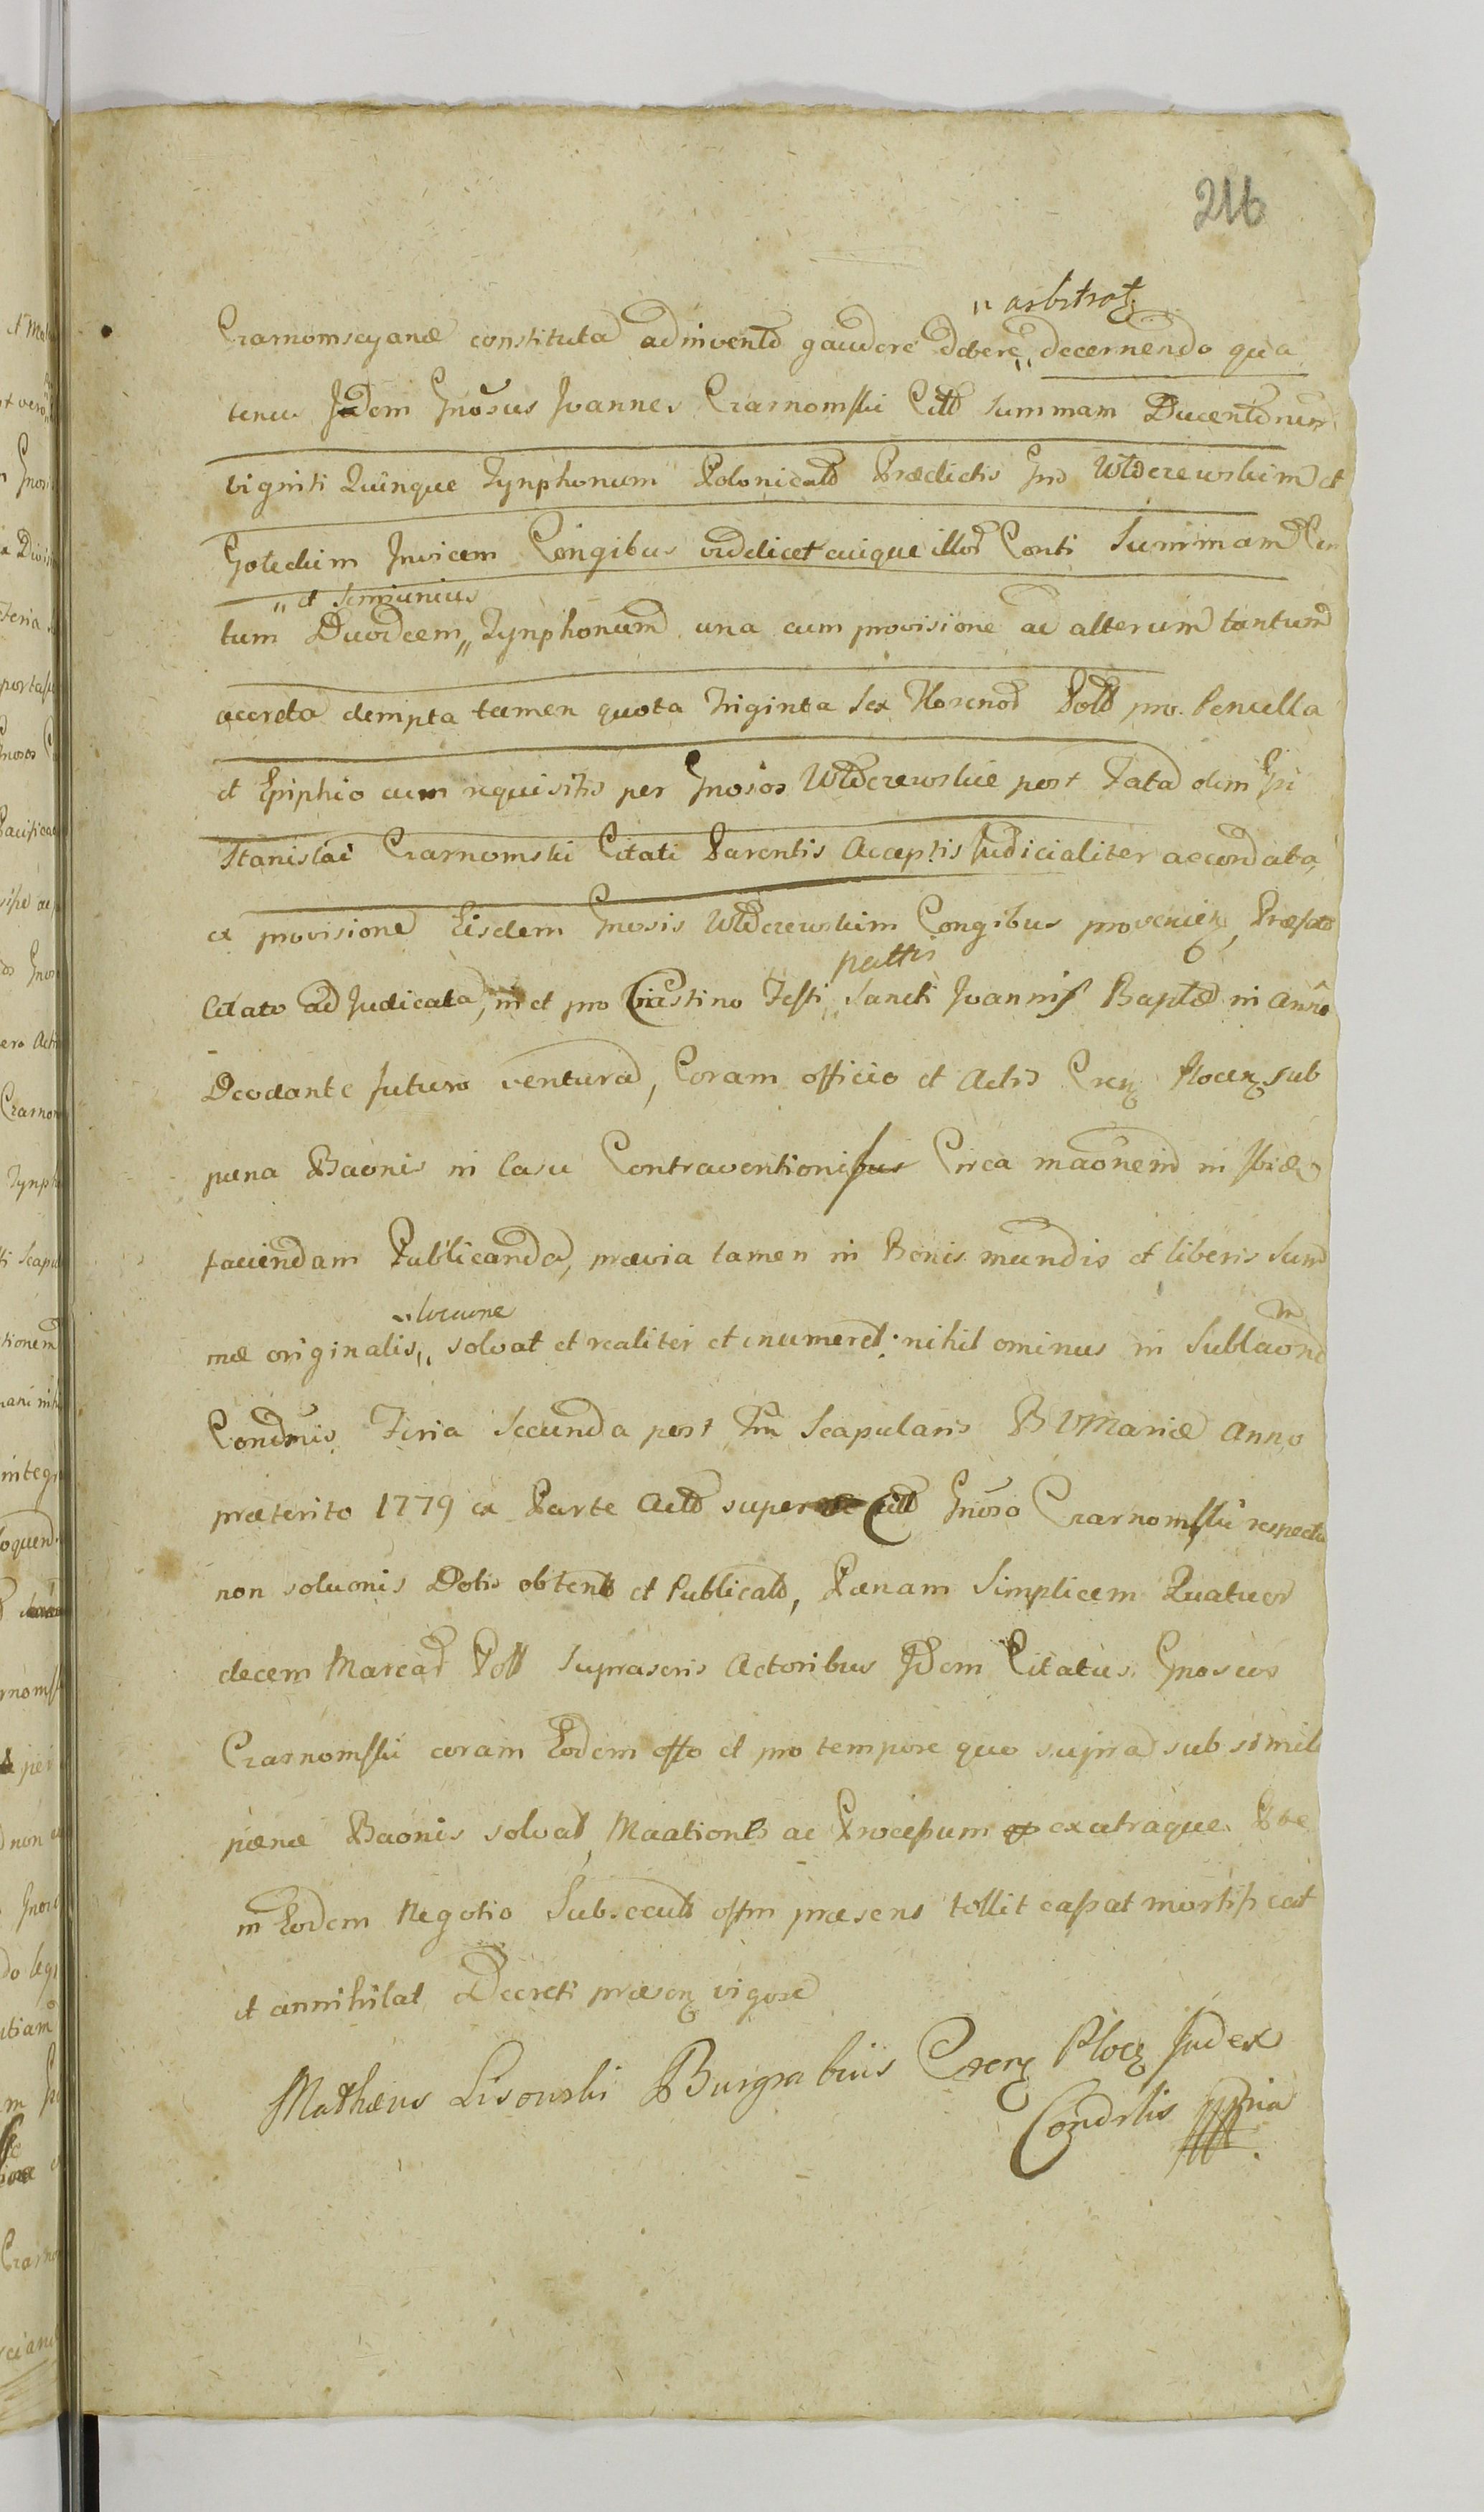 216
„ arbitratz
Czarnomscyanæ constituta adinvento gaudere debere „ decernendo qua
tenus Idem Gnosus Joannes Czarnomski Citto summam Ducentorum
viginti Quinque Tynphonum Polonicalo Prædictis Gnd Wlderewskim et
Gotedium Invicem Congibus videlicet cuique illor Conti Summam Cen
„ et Semiunius
tum Duodecem „ Tynphonum una cum provisione ad alterum tantum
accreta dempta tamen quota Triginta Sex Florenor Poll pro
et Epiphio cum requisitis per Gnosos Wlderewskie post Fata olim Gsi
Stanislai Czarnomski Citati Parentis Acceptis Judicialiter accordata,
ex provisione Eisdem Gnosis Wlderewskim Congibus provenien, Præfato
Citato adjudicata, in et pro Crastino Festi „ Sancti Joannis Baptæ in Anno
Deodante futuro ventura, Coram officio et Actis Cren Plocen sub
pæna Baonis in Casu Contraventionis Circa maonem in
faciendam Publicanda, prævia tamen in Bonis mundis et liberis Sum
„ locaone
mæ originalis „ solvat et realiter et numeret: nihil ominus in Sublaone
Condemnis Feria Secunda post Fm Scapularis B V Mariæ Anno
præterito 1779 ex Parte Acto super Citto Gnoso Czarnomski respectu
non soluonis Dotis obtent et Publicato, Pænam Simplicem Quatuor
decem Marcar Poll Suprascris Actoribus Idem Citatus Gnosus
Czarnomski coram Eodem offo et pro tempore quo supra sub simili
pænæ Baonis solvat, Maationes ac Processum ex utraque Pte
in Eodem Negotio Subsecut offm præsens tollit cassat mortificat
et annihilat Decreti præsen vigore
Mathæus Lisowski Burgrabius Cren Plocen Judex
Condilis mpria